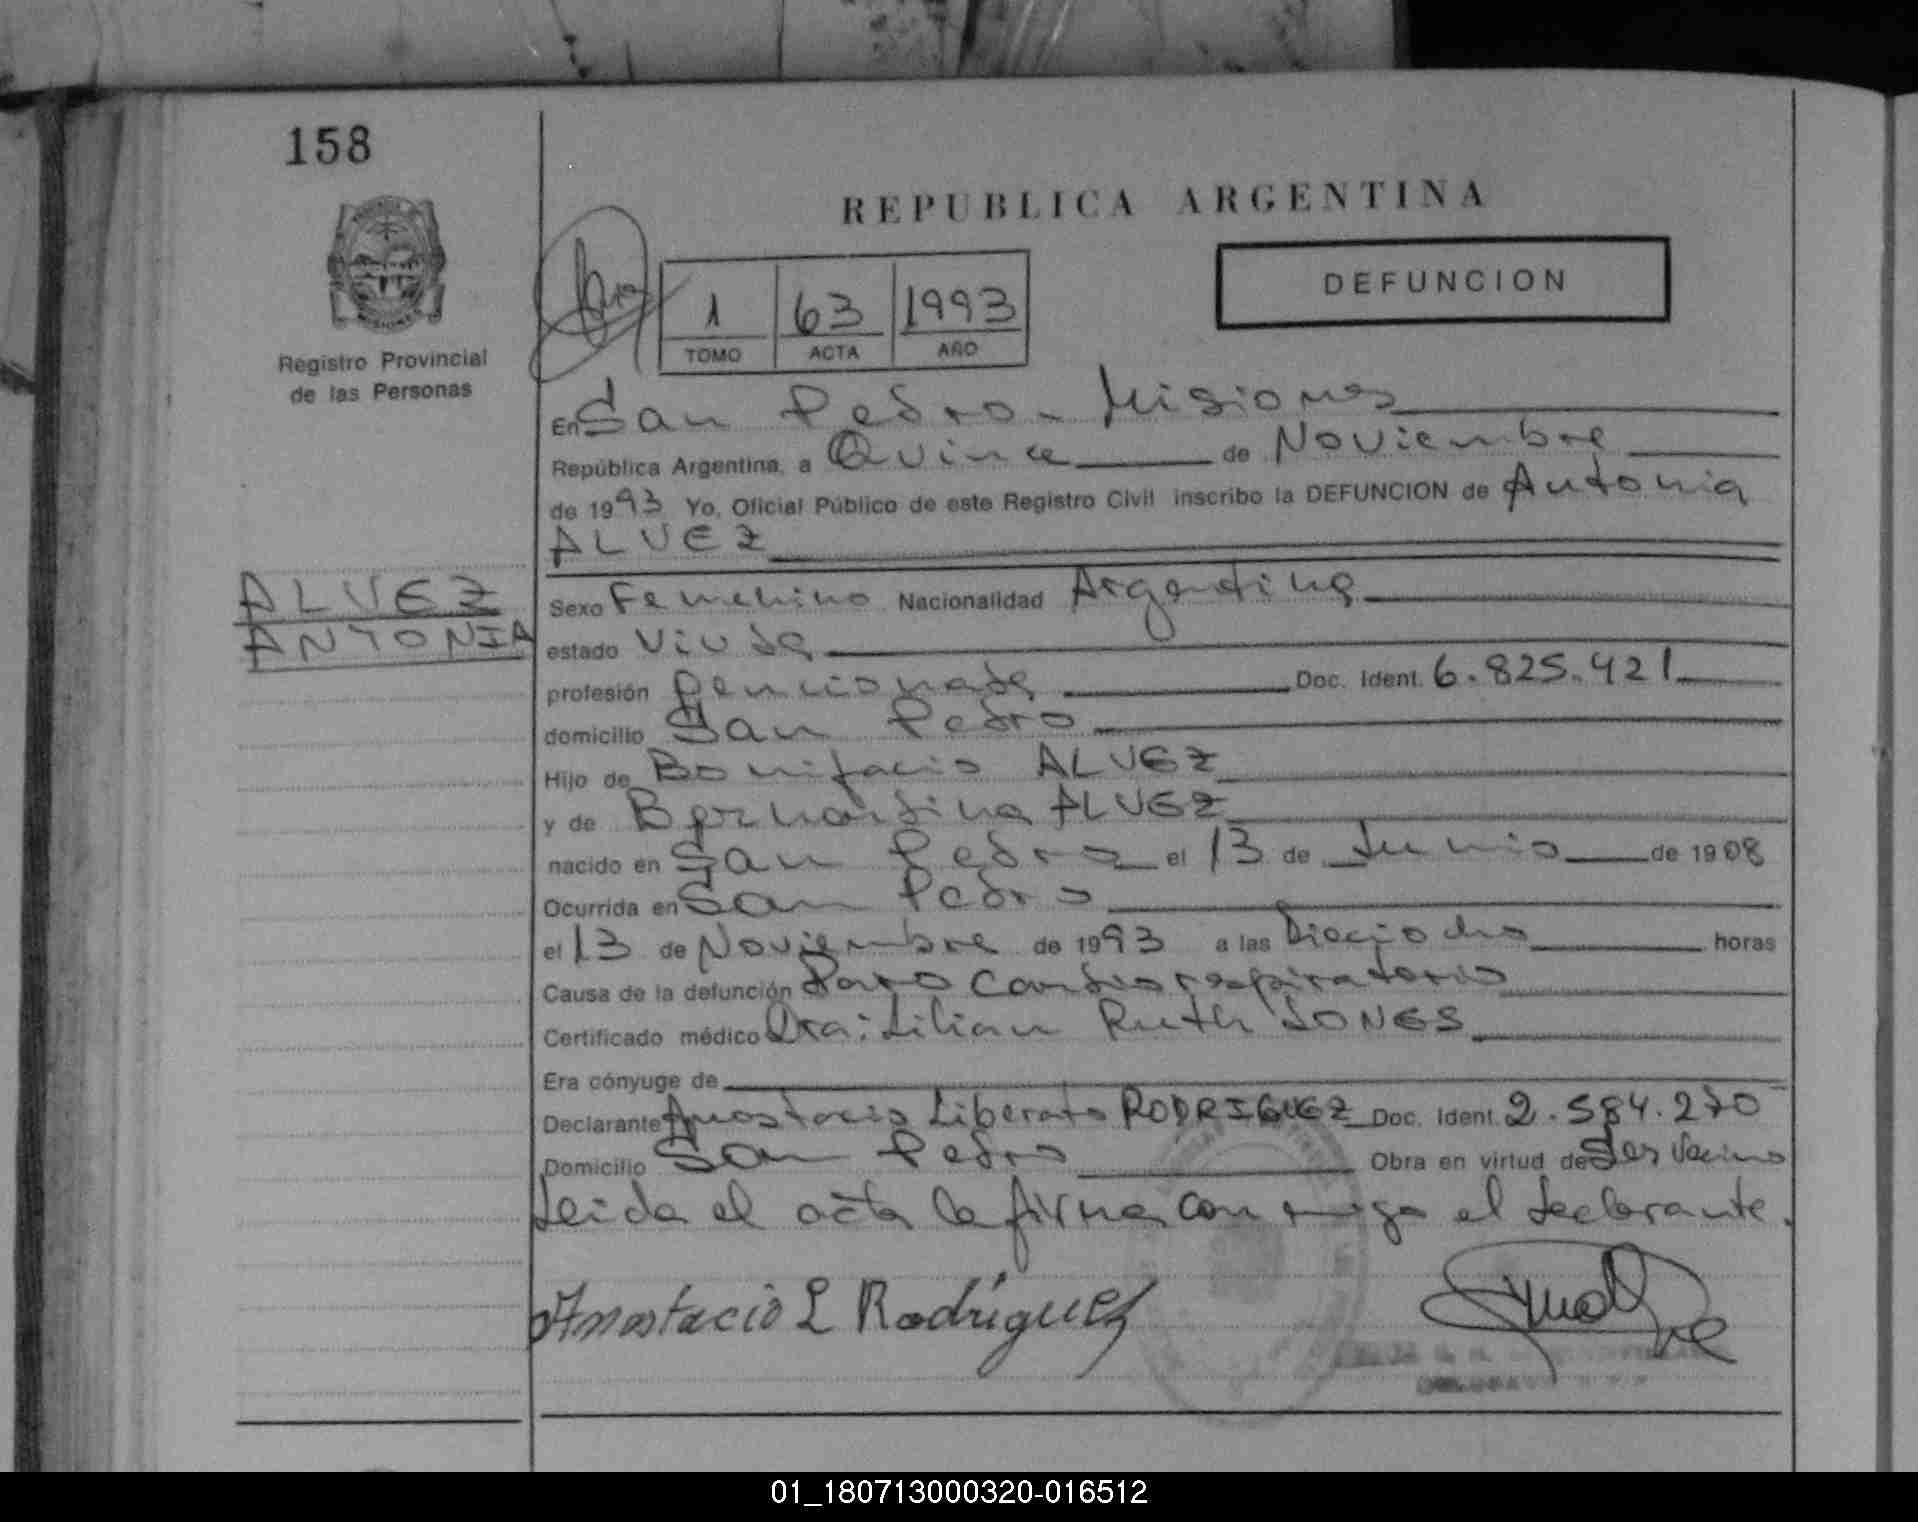 158
REPUBLICA ARGENTINA
DEFUNCION
1 63 1993
TOMO ACTA AÑO
Registro Provincial
de las Personas
En San Pedro - Misiones
República Argentina, a Quince de Noviembre
de 1993 Yo, Oficial Público de este Registro Civil inscribo la DEFUNCION de Antonia
ALVEZ
ALVEZ
ANTONIA
Sexo Femenino Nacionalidad Argentina
estado Viuda
profesión Pencionada Doc. Ident. 6.825.421
domicilio San Pedro
Hijo de Bonifacio ALVEZ
y de Bernardina ALVEZ
nacido en San Pedro el 13 de Junio de 1908
Ocurrida en San Pedro
el 13 de Noviembre de 1993 a las Dieciocho horas
Causa de la defunción Paro Cardiorespiratorio
Certificado médico Dra: Lilian Ruth JONES
Era cónyuge de
Declarante Anastacio Liberato RODRIGUEZ Doc. Ident. 2.584.270
Domicilio San Pedro Obra en virtud de Ser Vecino
Leida el acta la firma con migo el declarante.
Anastacio L Rodríguez
01_180713000320-016512